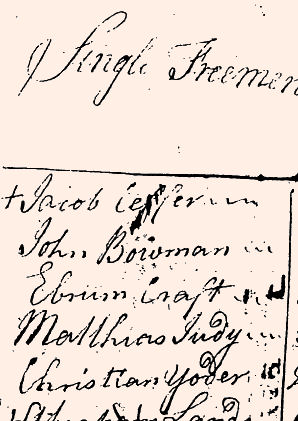 Single Freemen
+ Jacob
John Bowman
Ebrum Craft
Matthias Judy
Christian Yoder